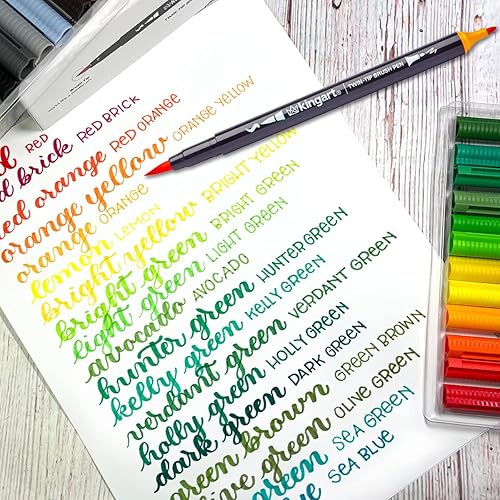 kingart® TWIN-TIP BRUSH PEN
RED
brick RED BRICK
red orange RED ORANGE
orange yellow ORANGE YELLOW
orange ORANGE
lemon LEMON
bright yellow BRIGHT YELLOW
bright green BRIGHT GREEN
light green LIGHT GREEN
avocado AVOCADO
hunter green HUNTER GREEN
kelly green KELLY GREEN
verdant green VERDANT GREEN
holly green HOLLY GREEN
dark green DARK GREEN
green brown GREEN BROWN
olive green OLIVE GREEN
green SEA GREEN
SEA BLUE